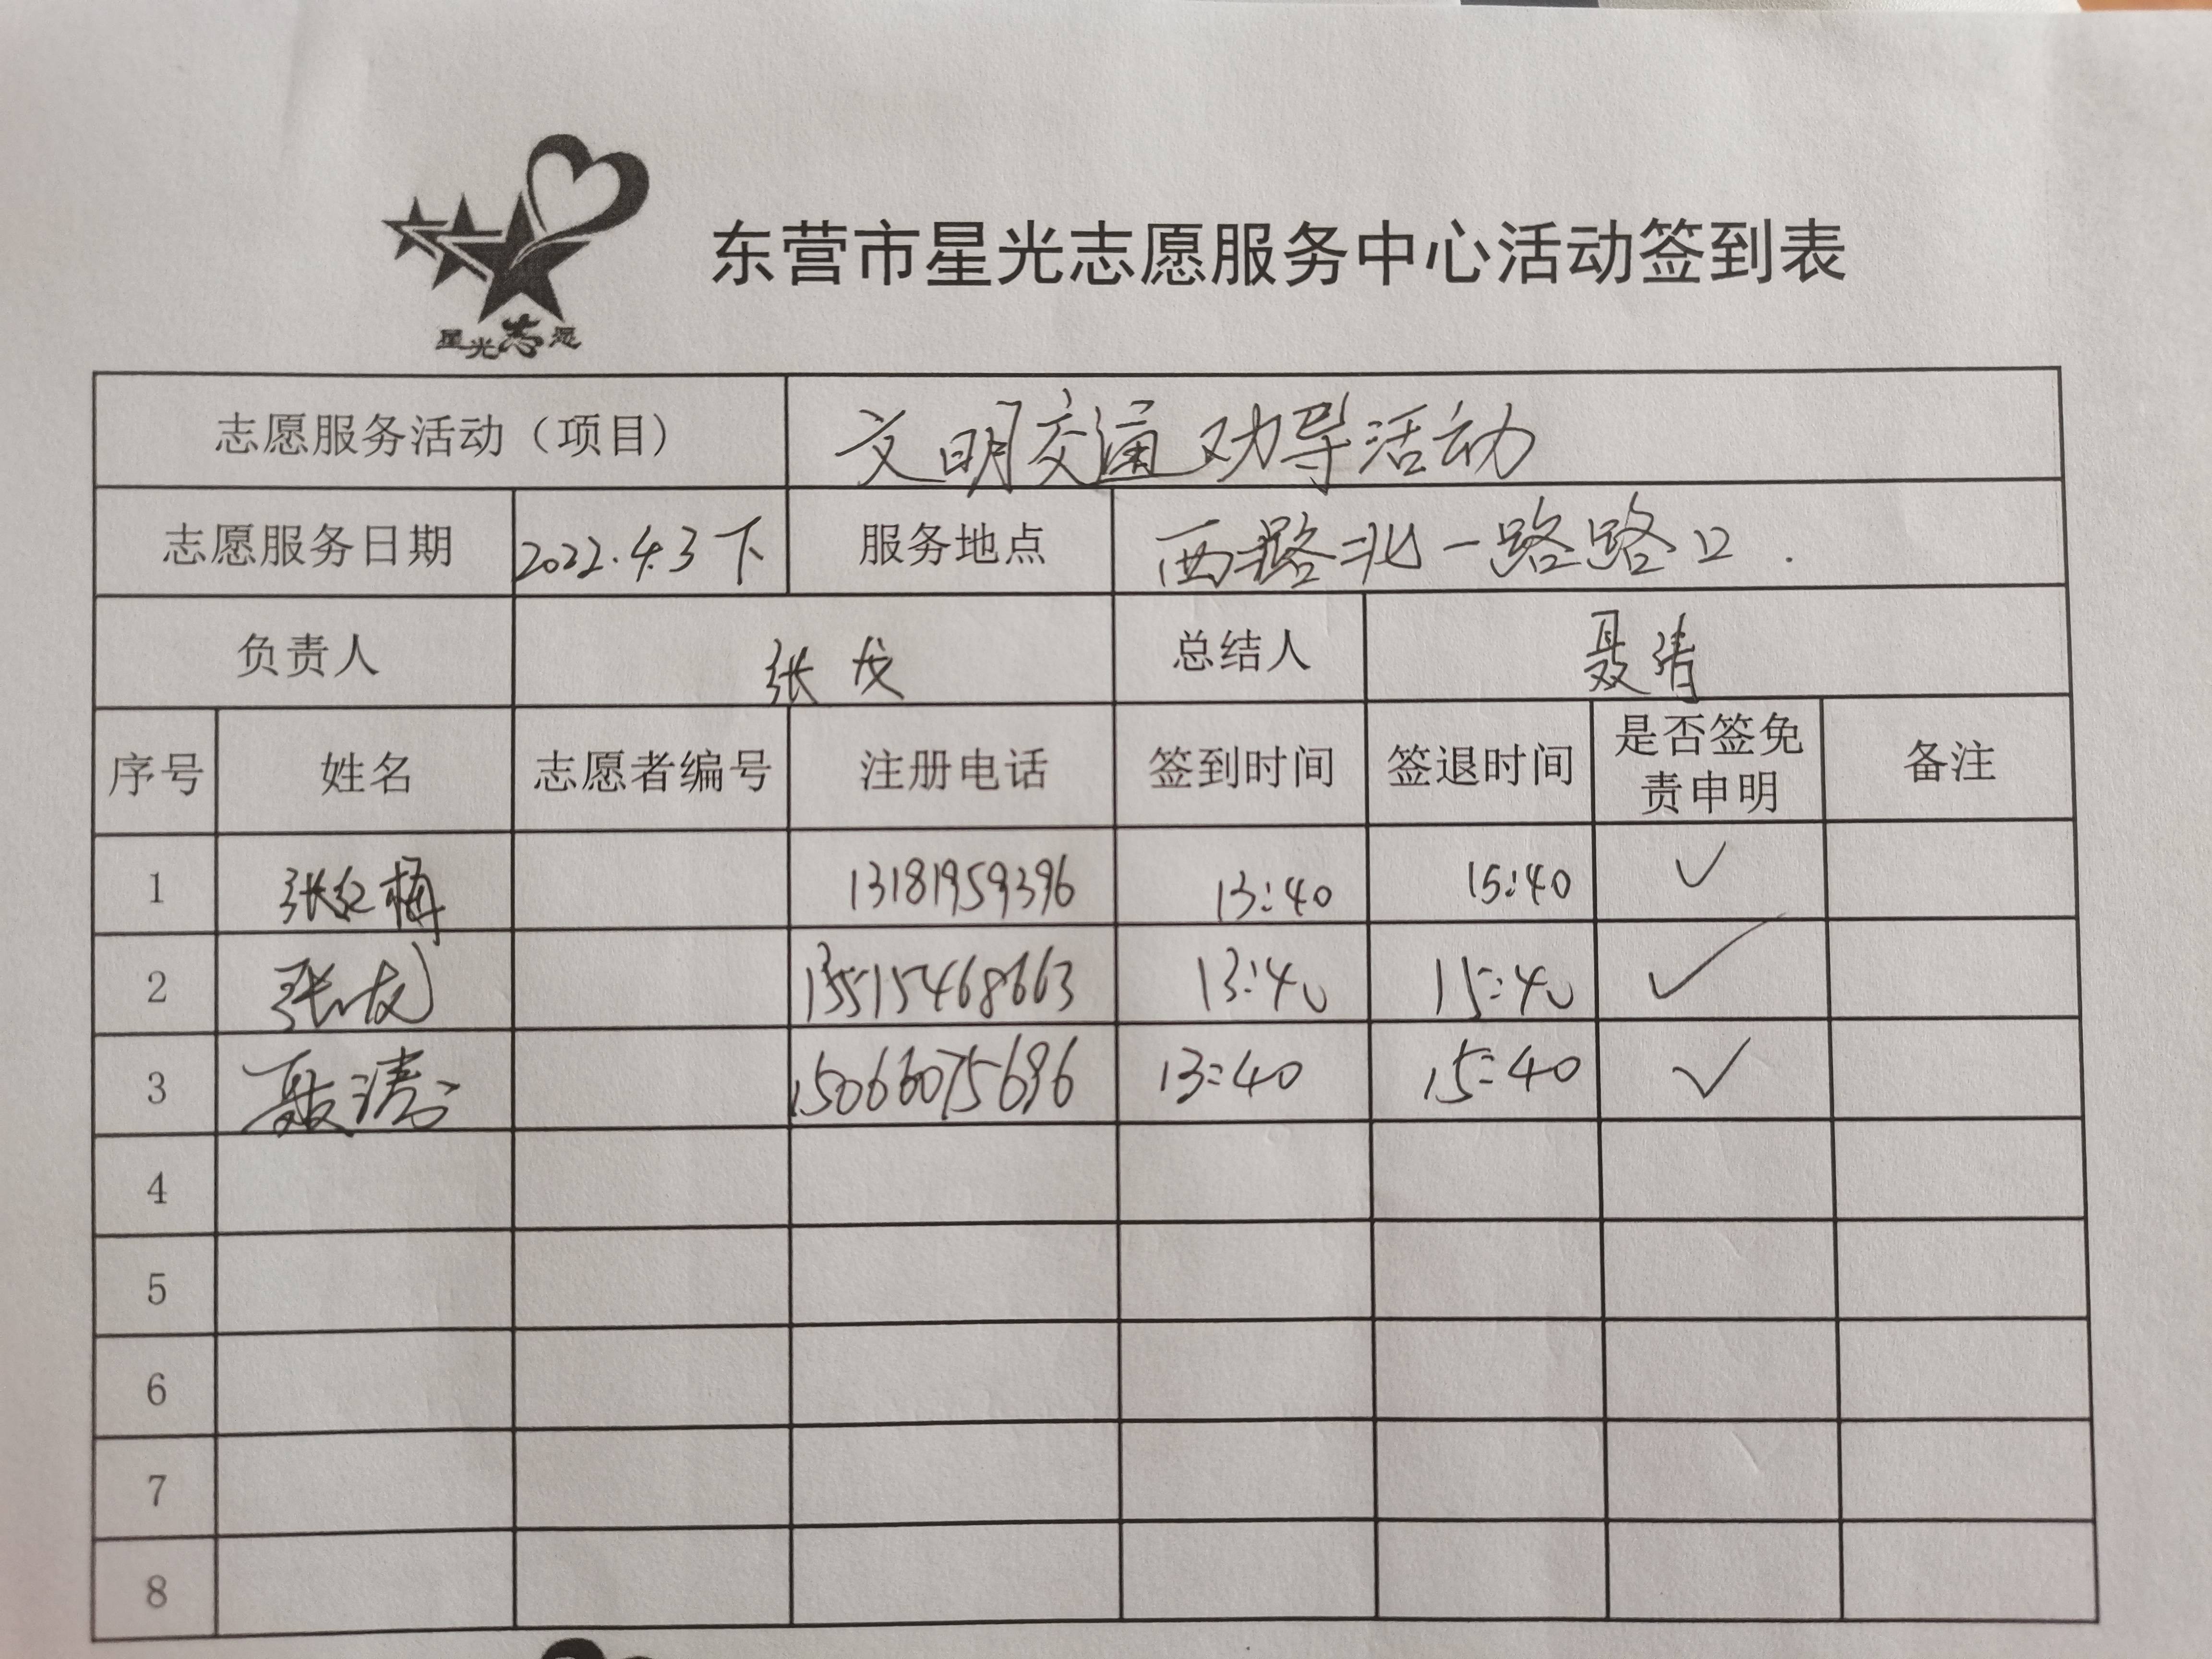 星光志愿
东营市星光志愿服务中心活动签到表
志愿服务活动（项目） 文明交通劝导活动
志愿服务日期 2022.4.3下 服务地点 西路北一路路口.
负责人 张 总结人 聂涛
序号 姓名 志愿者编号 注册电话 签到时间 签退时间 是否签免责申明 备注
1 张红梅 13181959396 13:40 15:40 ✓
2 张 15468663 13:40 15:40 ✓
3 聂涛 15066075696 13:40 15:40 ✓
4
5
6
7
8